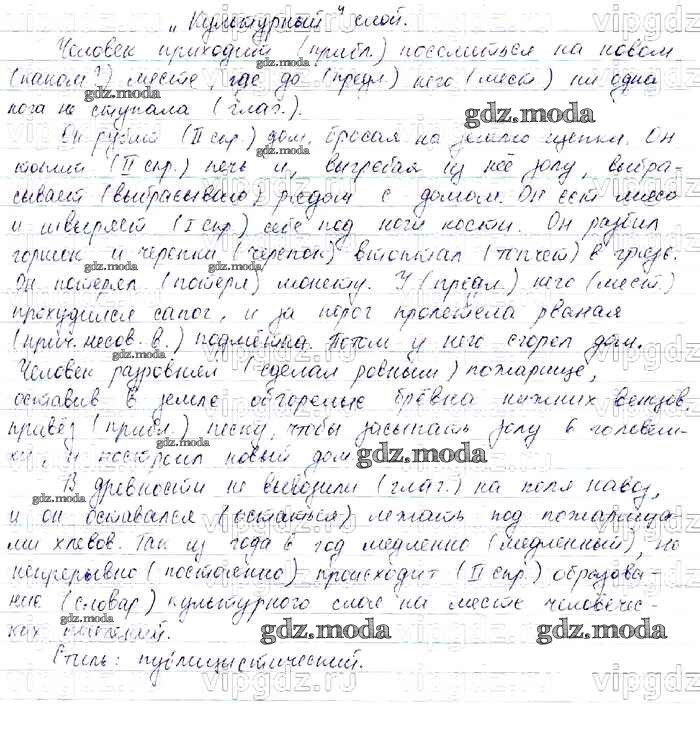 „Культурный" слой.
Человек приходит (прибл.) поселиться на новом
(каком?) месте, где до (предл.) него (мест) ни одна
нога не ступала (глаг.).
gdz.moda
Он рубит (II спр.) дом, бросая на землю щепки. Он
топит (II спр.) печь и, выгребая из неё золу, выбра-
сывает (выбрасываю) рядом с домом. Он ест мясо
и швыряет (I спр.) себе под ноги кости. Он разбил
горшок и черепки (черепок) втоптал (топчет) в грязь.
gdz.moda
Он потерял (потеря) монету. У (предл.) него (мест.)
прохудился сапог, и за порог пролетела рваная
(прич. несов. в.) подмётка. Потом у него сгорел дом.
Человек разровнял (сделал ровным) пожарище,
оставив в земле обгорелые брёвна нижних венцов,
привёз (прибл.) песку, чтобы засыпать золу и головеш-
ки, и построил новый дом.
gdz.moda
В древности не вывозили (глаг.) на поля навоз,
и он оставался (остаться) лежать под пожарища-
ми хлевов. Так из года в год медленно (медленный), но
непрерывно (постоянно) происходит (II спр.) образова-
ние (словар) культурного слоя на месте человечес-
ких
gdz.moda
Стиль: публицистический.
vipgdz.ru